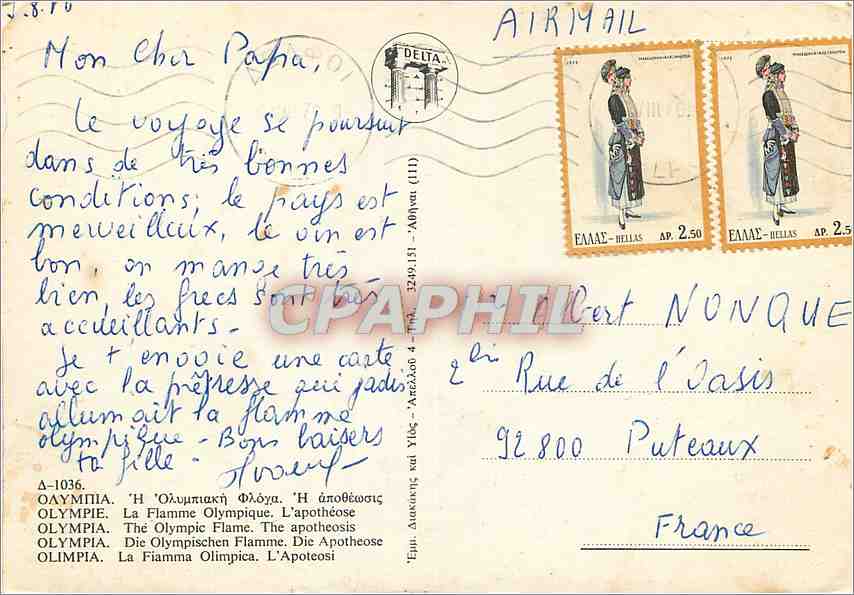 AIRMAIL
Mon Cher Papa,
Le voyage se poursuit
dans de très bonnes
conditions; le pays est
merveilleux, le vin est
bon, on mange très
bien, les grecs sont très
accueillants -
Je t'envoie une carte
avec la prêtresse qui jadis
allumait la flamme
olympique - Bons baisers
ta fille -
Δ-1036.
ΟΛΥΜΠΙΑ. Ἡ Ὀλυμπιακὴ Φλόγα. Ἡ ἀποθέωσις
OLYMPIE. La Flamme Olympique. L'apothéose
OLYMPIA. The Olympic Flame. The apotheosis
OLYMPIA. Die Olympischen Flamme. Die Apotheose
OLIMPIA. La Fiamma Olimpica. L'Apoteosi
DELTA
Ἐμμ. Διακάκης καὶ Υἱὸς - Ἀπελλοῦ 4 - Τηλ. 3249.151 - Ἀθῆναι (111)
ΕΛΛΑΣ-HELLAS ΔΡ. 2.50
ΕΛΛΑΣ-HELLAS ΔΡ. 2.50
CPAPHIL
Albert NONQUE
2 bis Rue de l'Oasis
92800 Puteaux
France